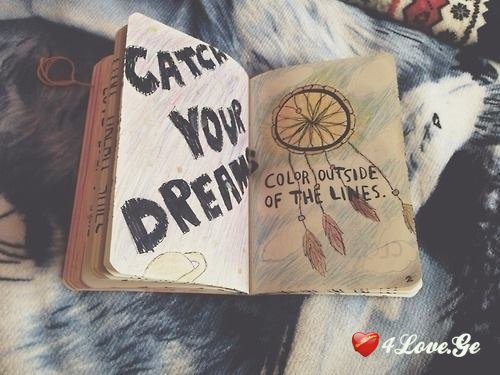 CATCH
YOUR
DREAMS
COLOR OUTSIDE
OF THE LINES.
2
4Love.Ge